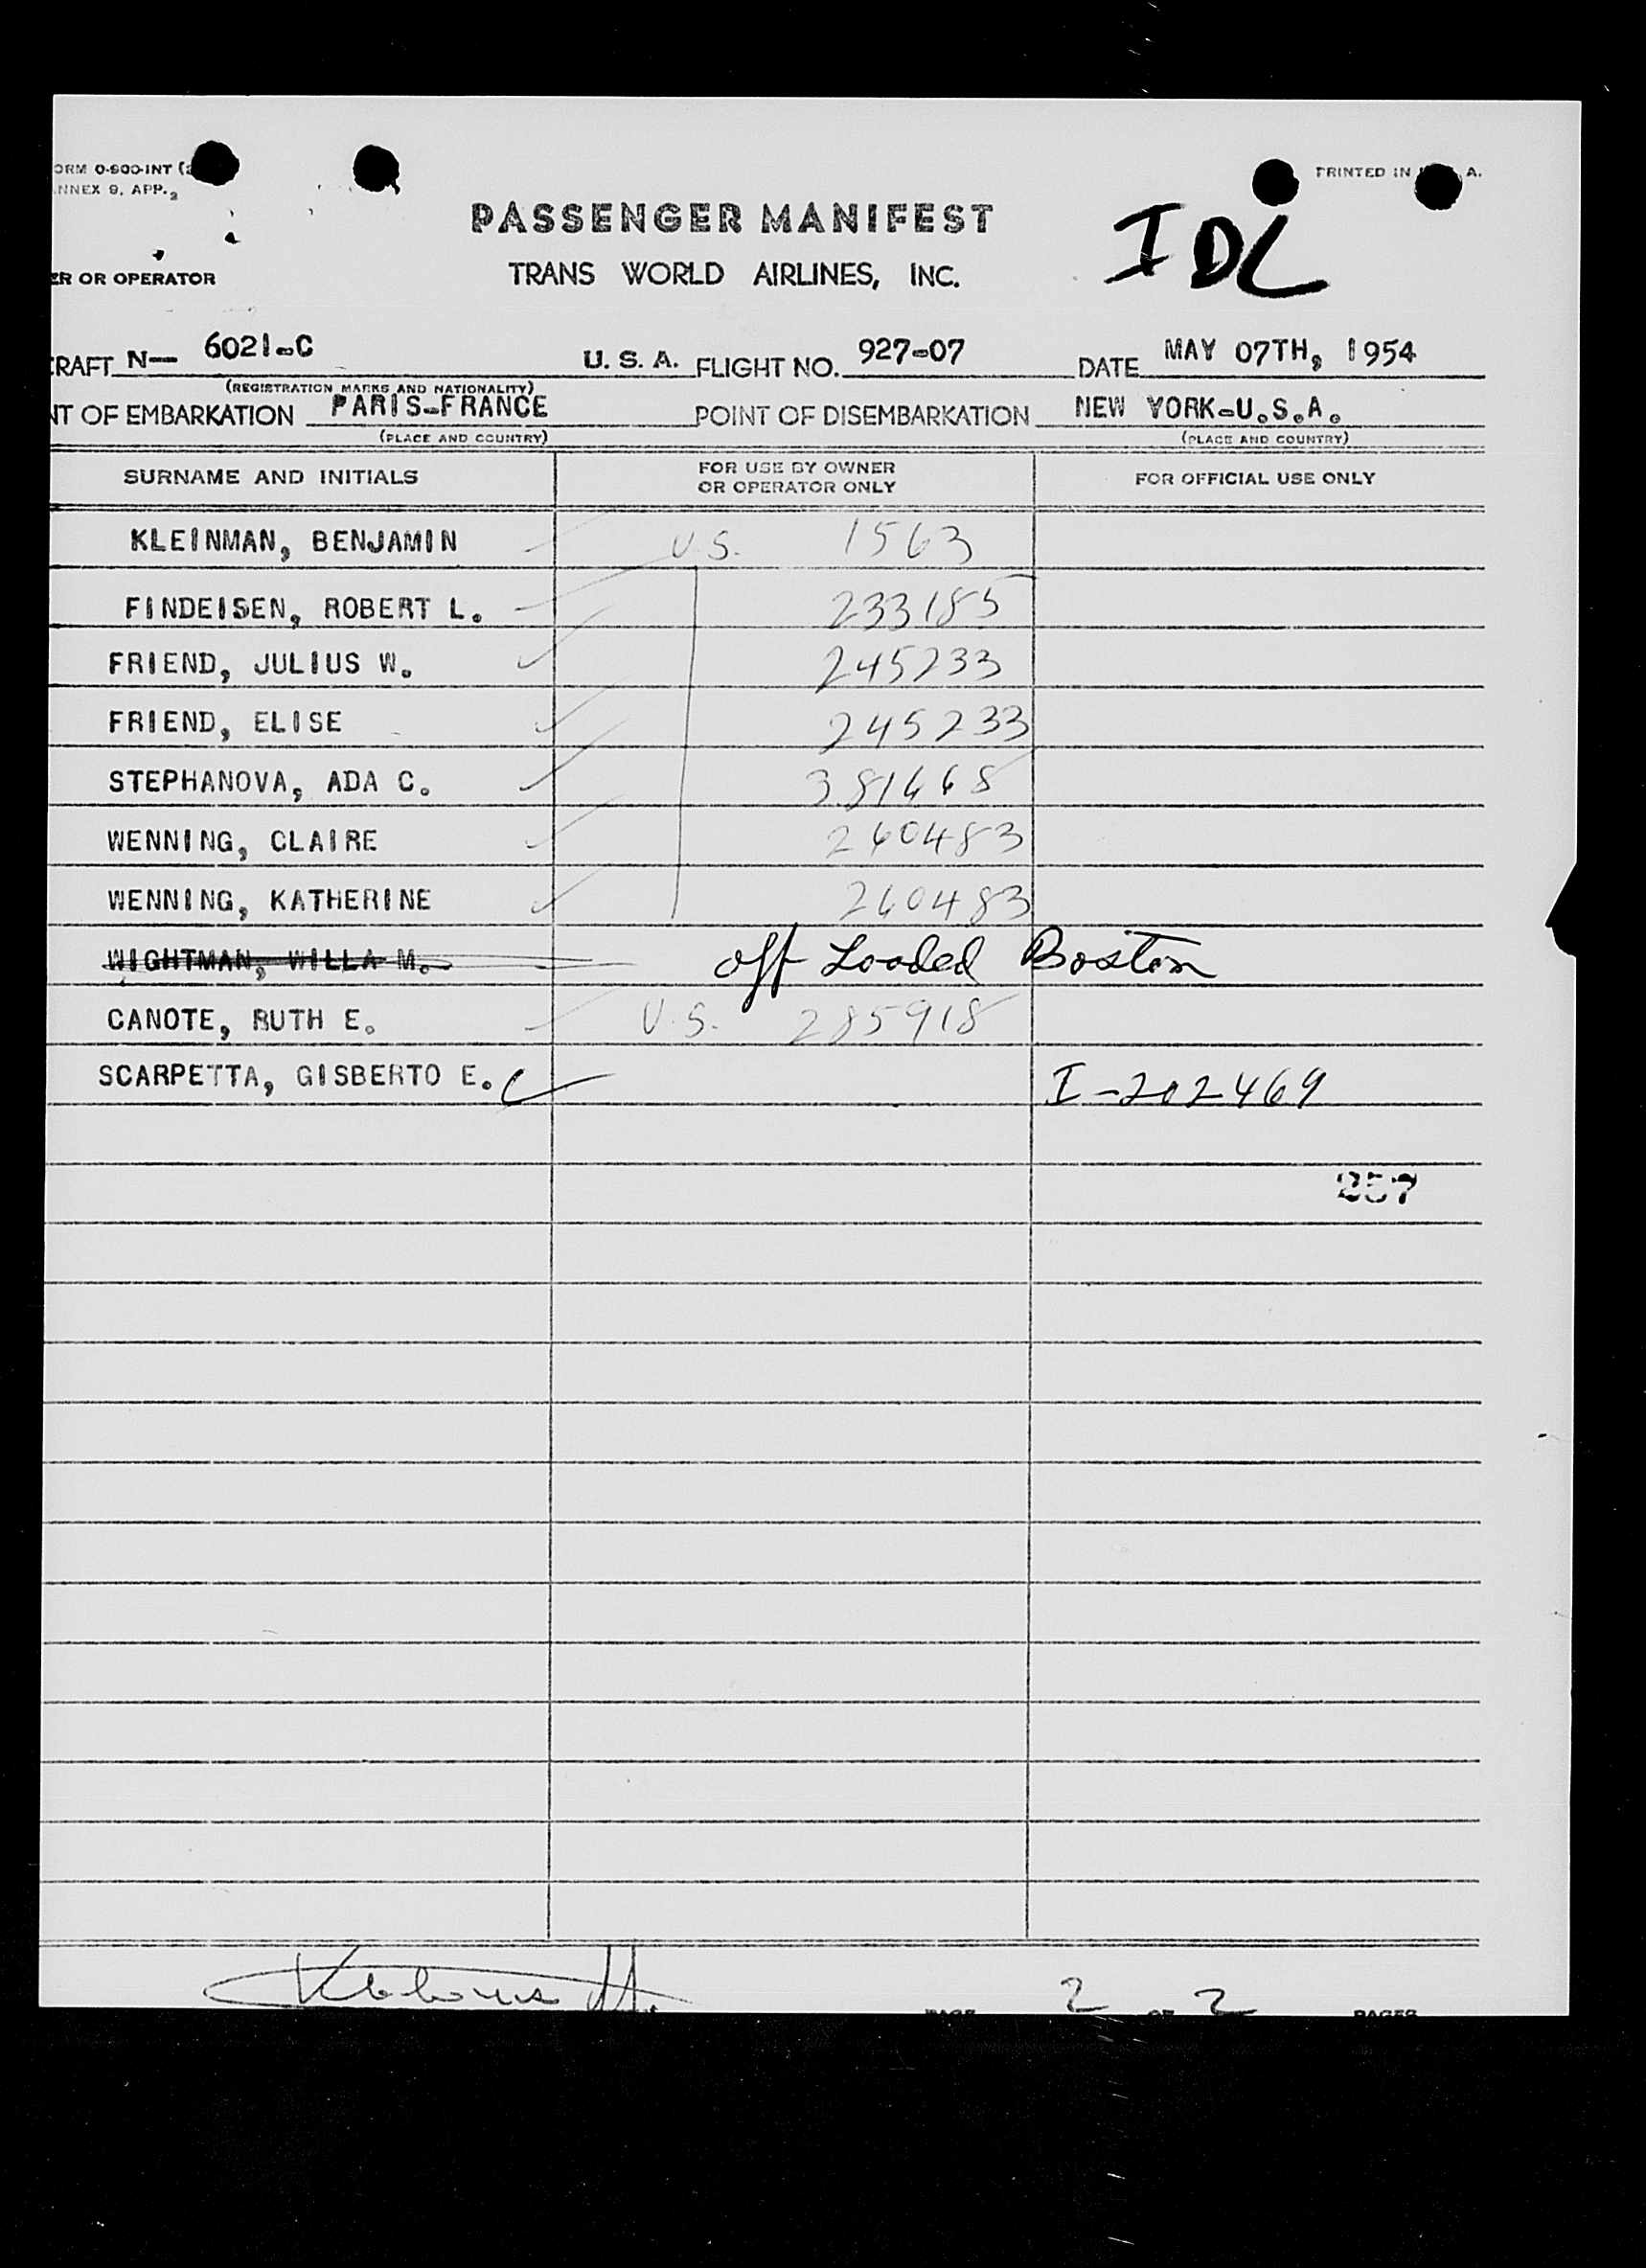 ORM 0-600-INT (
NNEX 9, APP. 2
PRINTED IN A.
PASSENGER MANIFEST
IDL
ER OR OPERATOR
TRANS WORLD AIRLINES, INC.
RAFT N— 6021-C U. S. A. FLIGHT NO. 927-07 DATE MAY 07TH, 1954
(REGISTRATION MARKS AND NATIONALITY)
NT OF EMBARKATION PARIS-FRANCE POINT OF DISEMBARKATION NEW YORK-U.S.A.
(PLACE AND COUNTRY) (PLACE AND COUNTRY)
SURNAME AND INITIALS FOR USE BY OWNER OR OPERATOR ONLY FOR OFFICIAL USE ONLY
KLEINMAN, BENJAMIN U.S. 1563
FINDEISEN, ROBERT L. 233185
FRIEND, JULIUS W. 245233
FRIEND, ELISE 245233
STEPHANOVA, ADA C. 381668
WENNING, CLAIRE 260483
WENNING, KATHERINE 260483
WIGHTMAN, WILLA M. off Loaded Boston
CANOTE, RUTH E. U.S. 285918
SCARPETTA, GISBERTO E. I-202469
257
PAGE 2 OF 2 PAGES